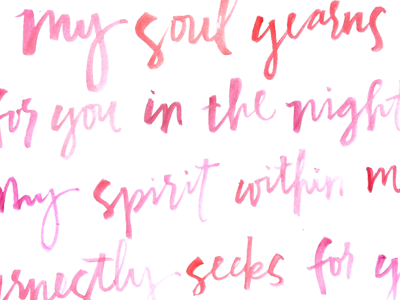 my soul yearns
for you in the night
my spirit within m
ernestly seeks for y